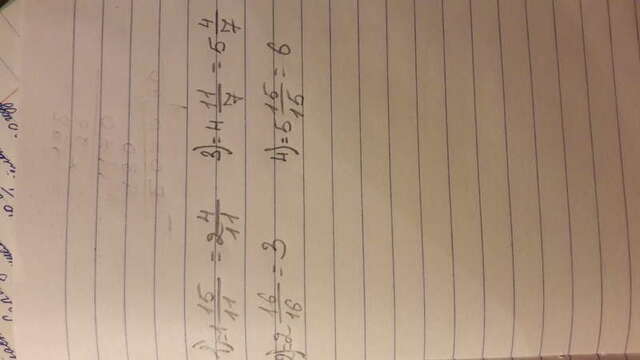 1) = 1 15/11 = 2 4/11
3) = 4 11/7 = 5 4/7
2) = 2 16/16 = 3
4) = 5 15/15 = 6